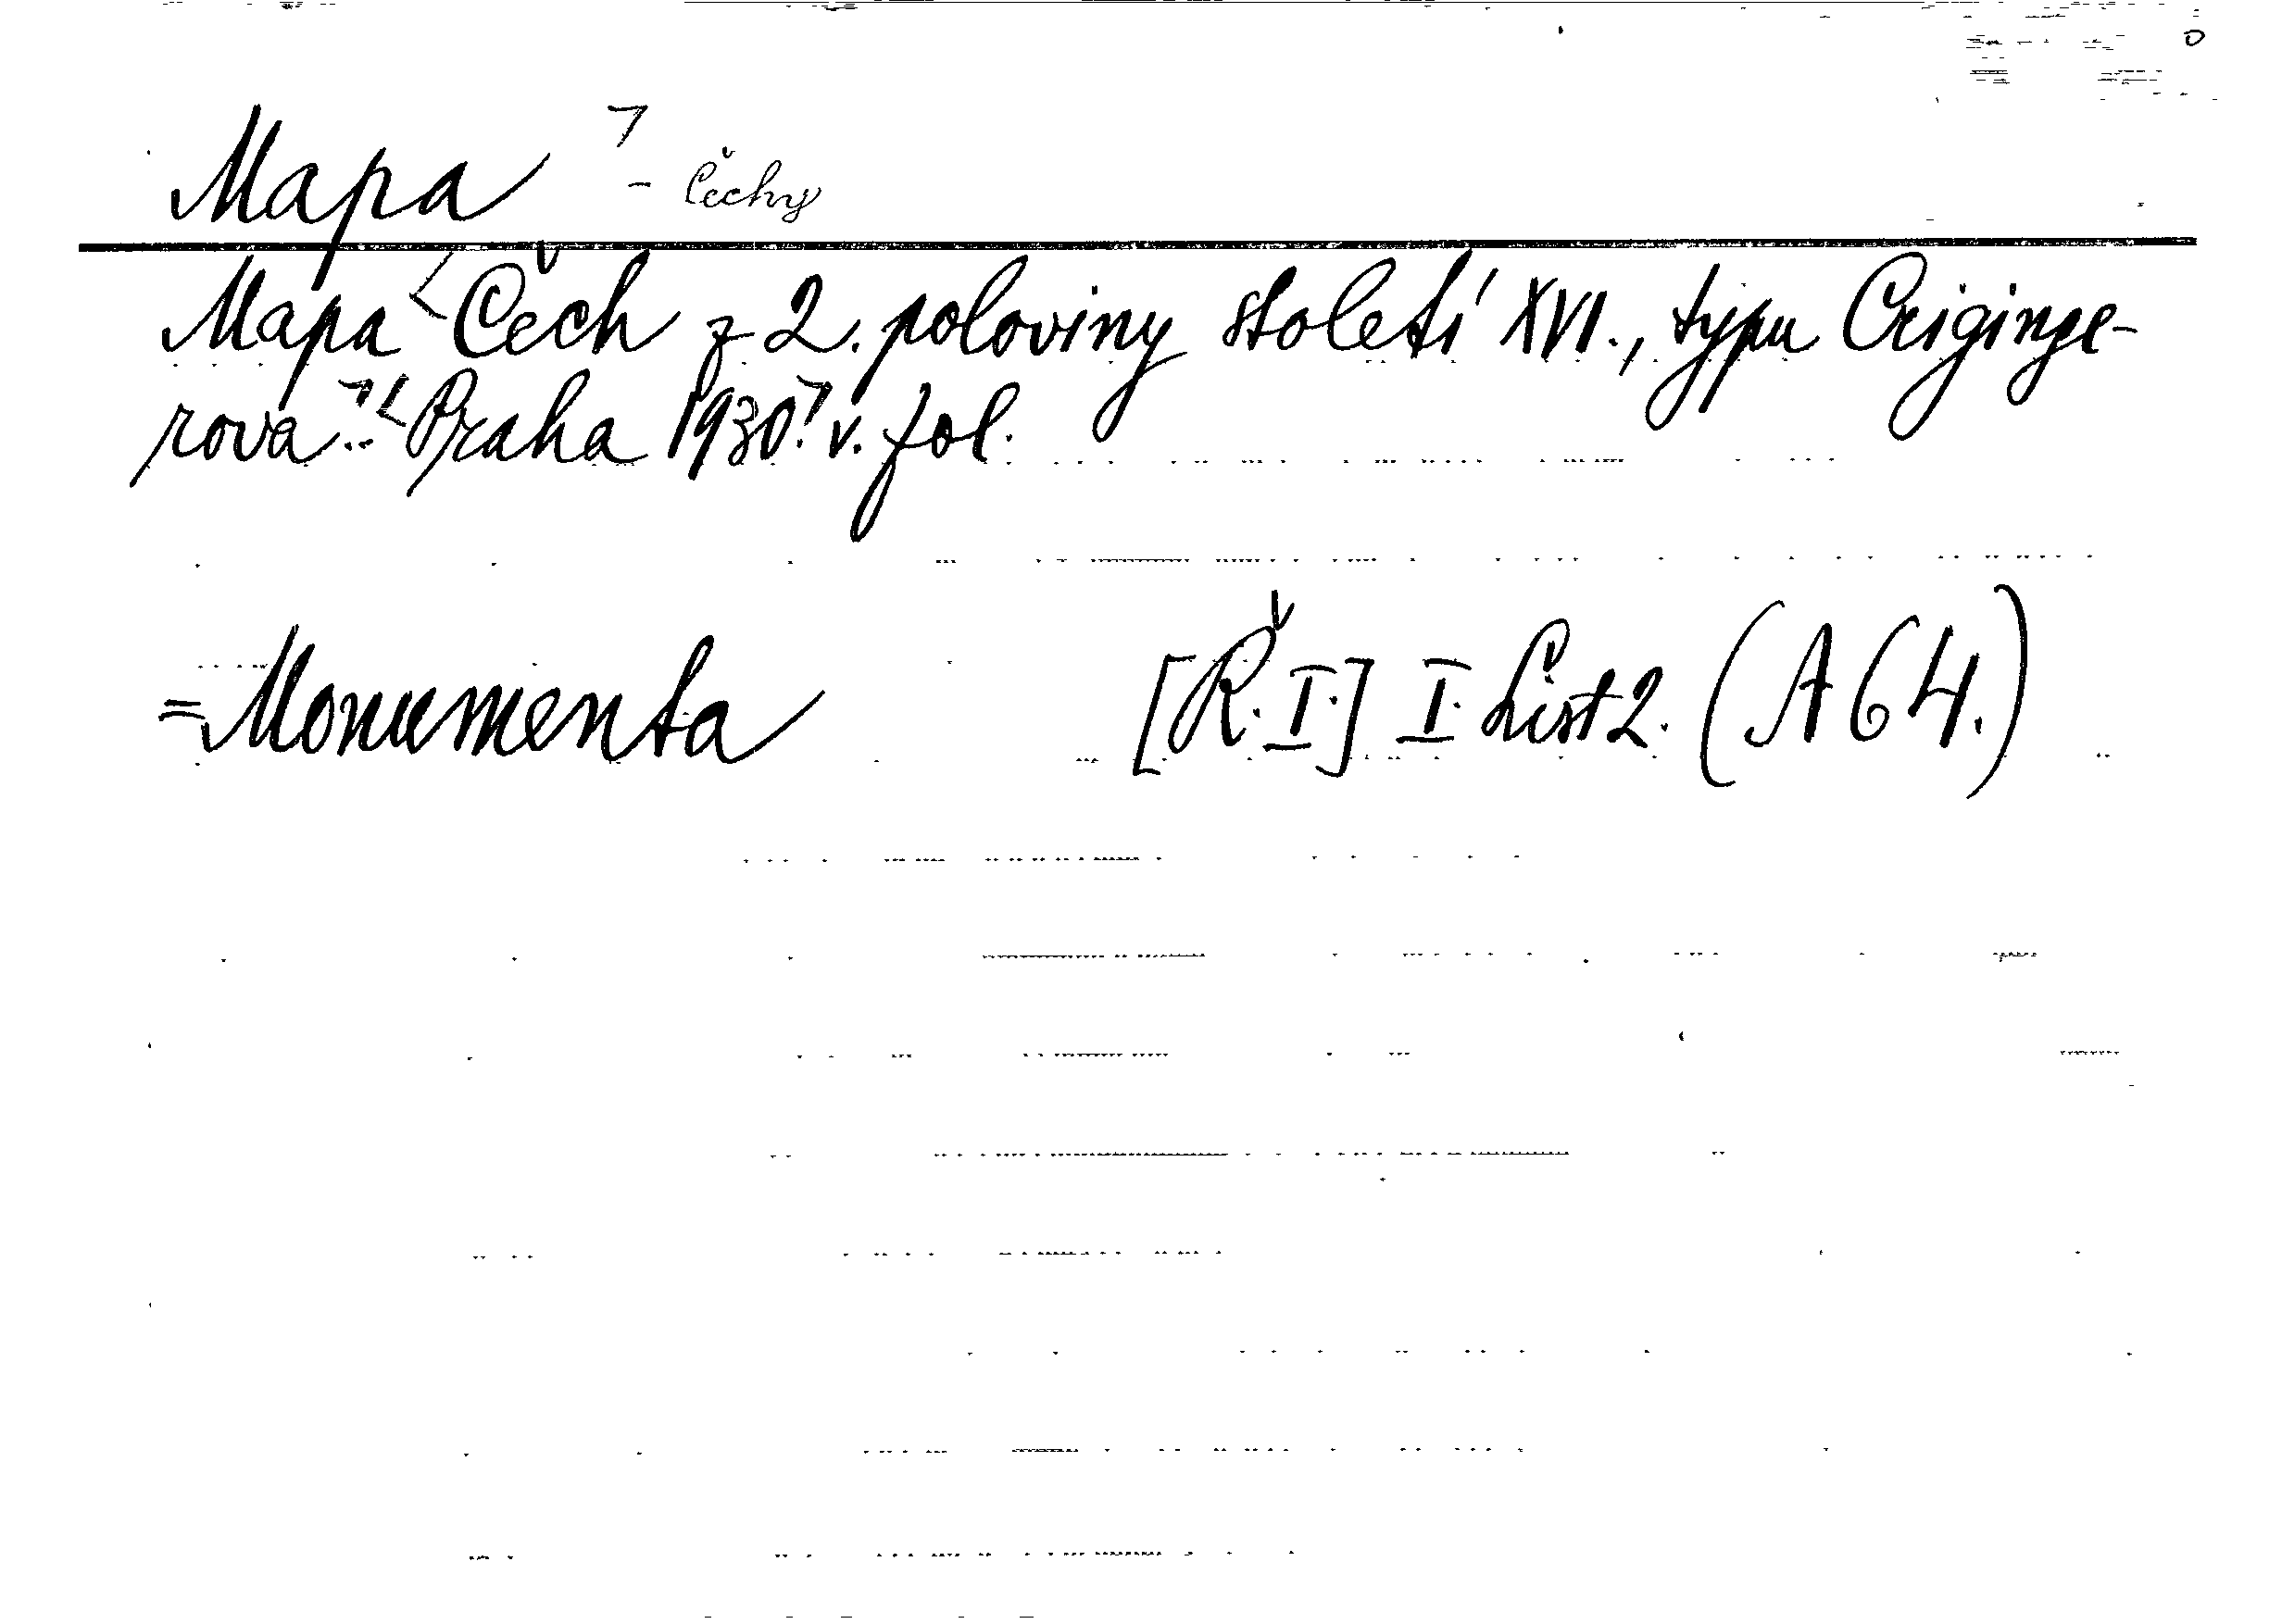 Mapa - Čechy
Mapa Čech z 2. poloviny století XVI., typu Criginge-
rova... Praha 1930. v. fol.
=Monumenta [Ř.I.] I. List 2. (A 64.)